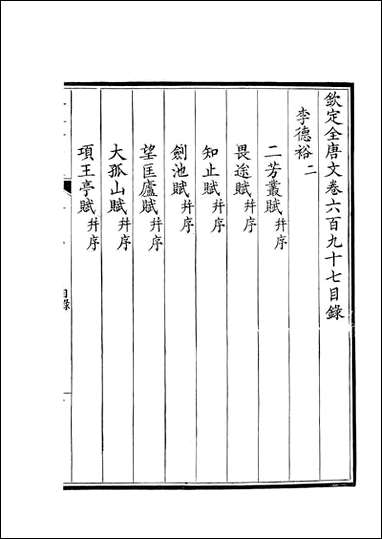 欽定全唐文卷六百九十七目錄
李德裕二
二芳叢賦并序
畏途賦并序
知止賦并序
劍池賦并序
望匡廬賦并序
大孤山賦并序
項王亭賦并序
目錄